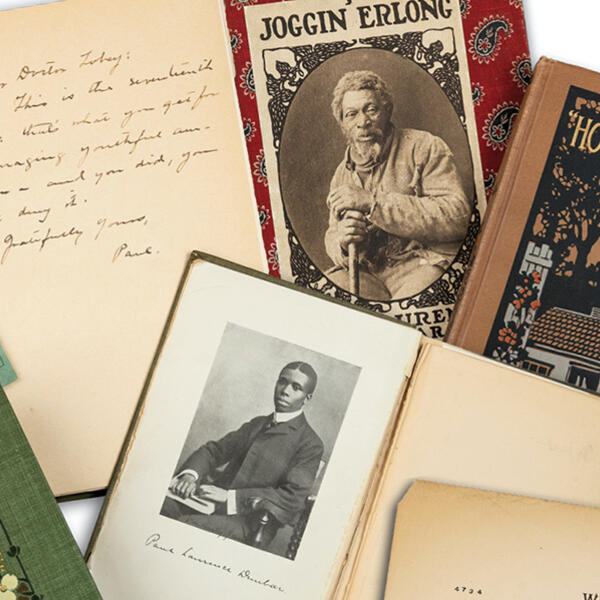 Doctor Tobey:
This is the seventeenth
that's what you get for
youthful am-
and you did, you
deny it.
Gratefully yours,
Paul.
JOGGIN' ERLONG
JOGGIN ERLONG
Paul Laurence Dunbar
4734